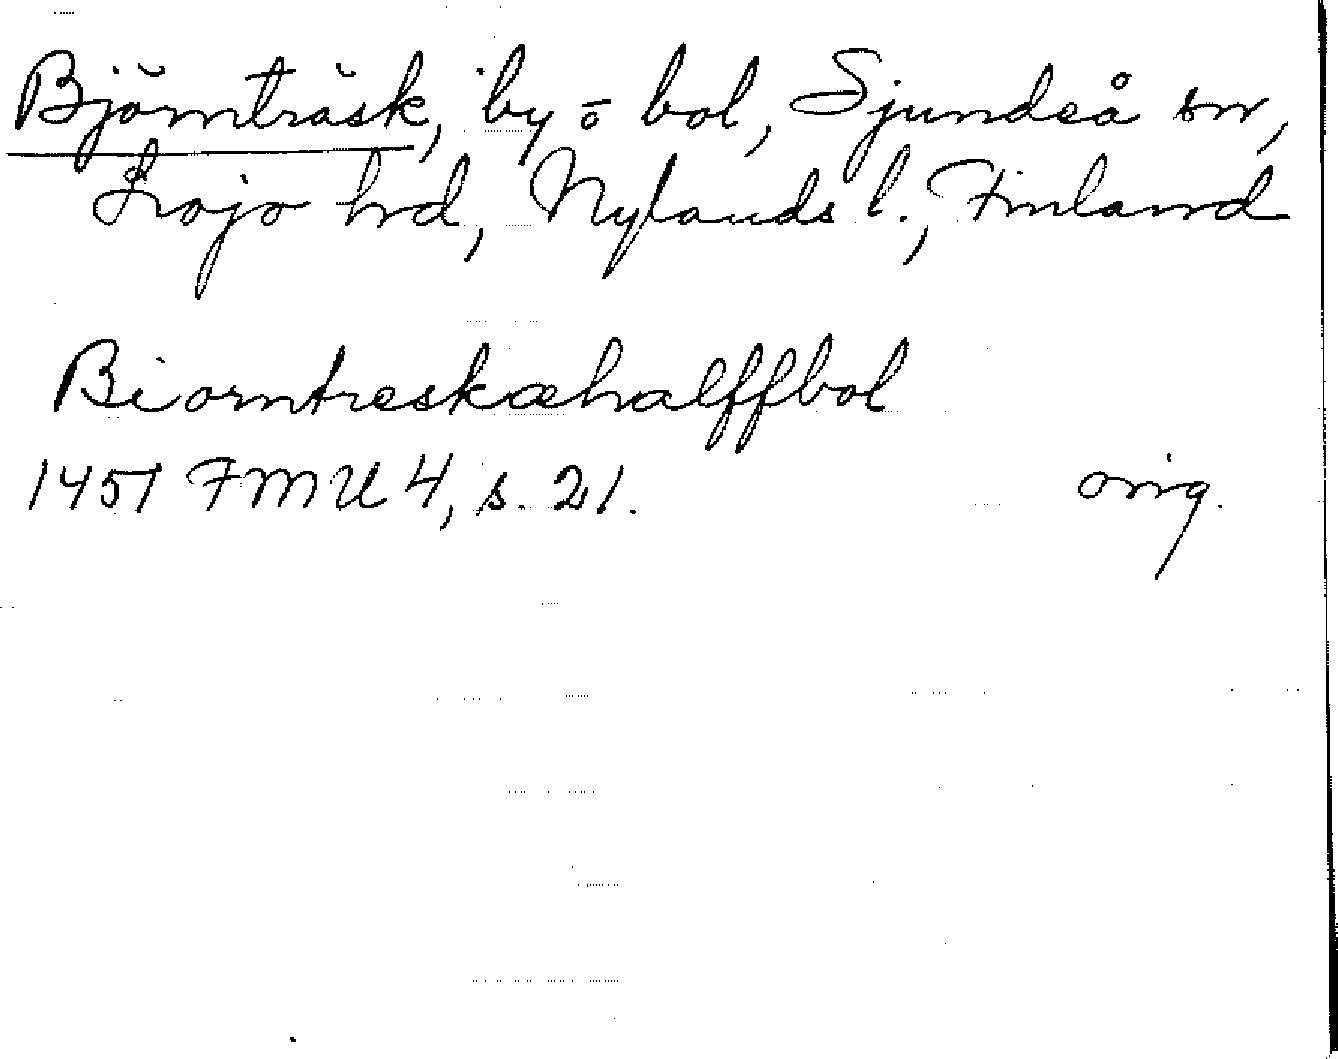 Björnträsk, by o bol, Sjundeå sn,
Lojo hrd, Nylands l., Finland
Biorntreskæhalffbol
1451 FMU 4, s. 21. orig.